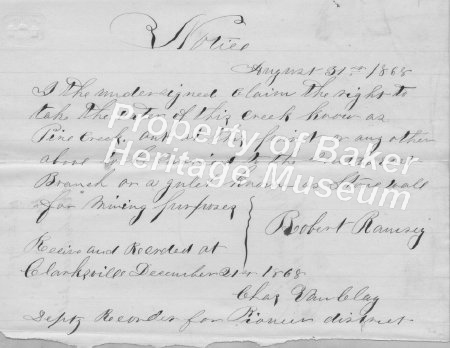 Notice
August 31st 1868
I the undersigned Claim the right to
take the Water of this Creek know as
Pine Creek at this point or any other
above
Branch or a gulch known as
for Mining purposes
Robert Ramsey
Reciev and Recorded at
Clarksville December 21st 1868
Chas Van Clay
Depty Recorder for Pioneer district
Property of Baker
Heritage Museum